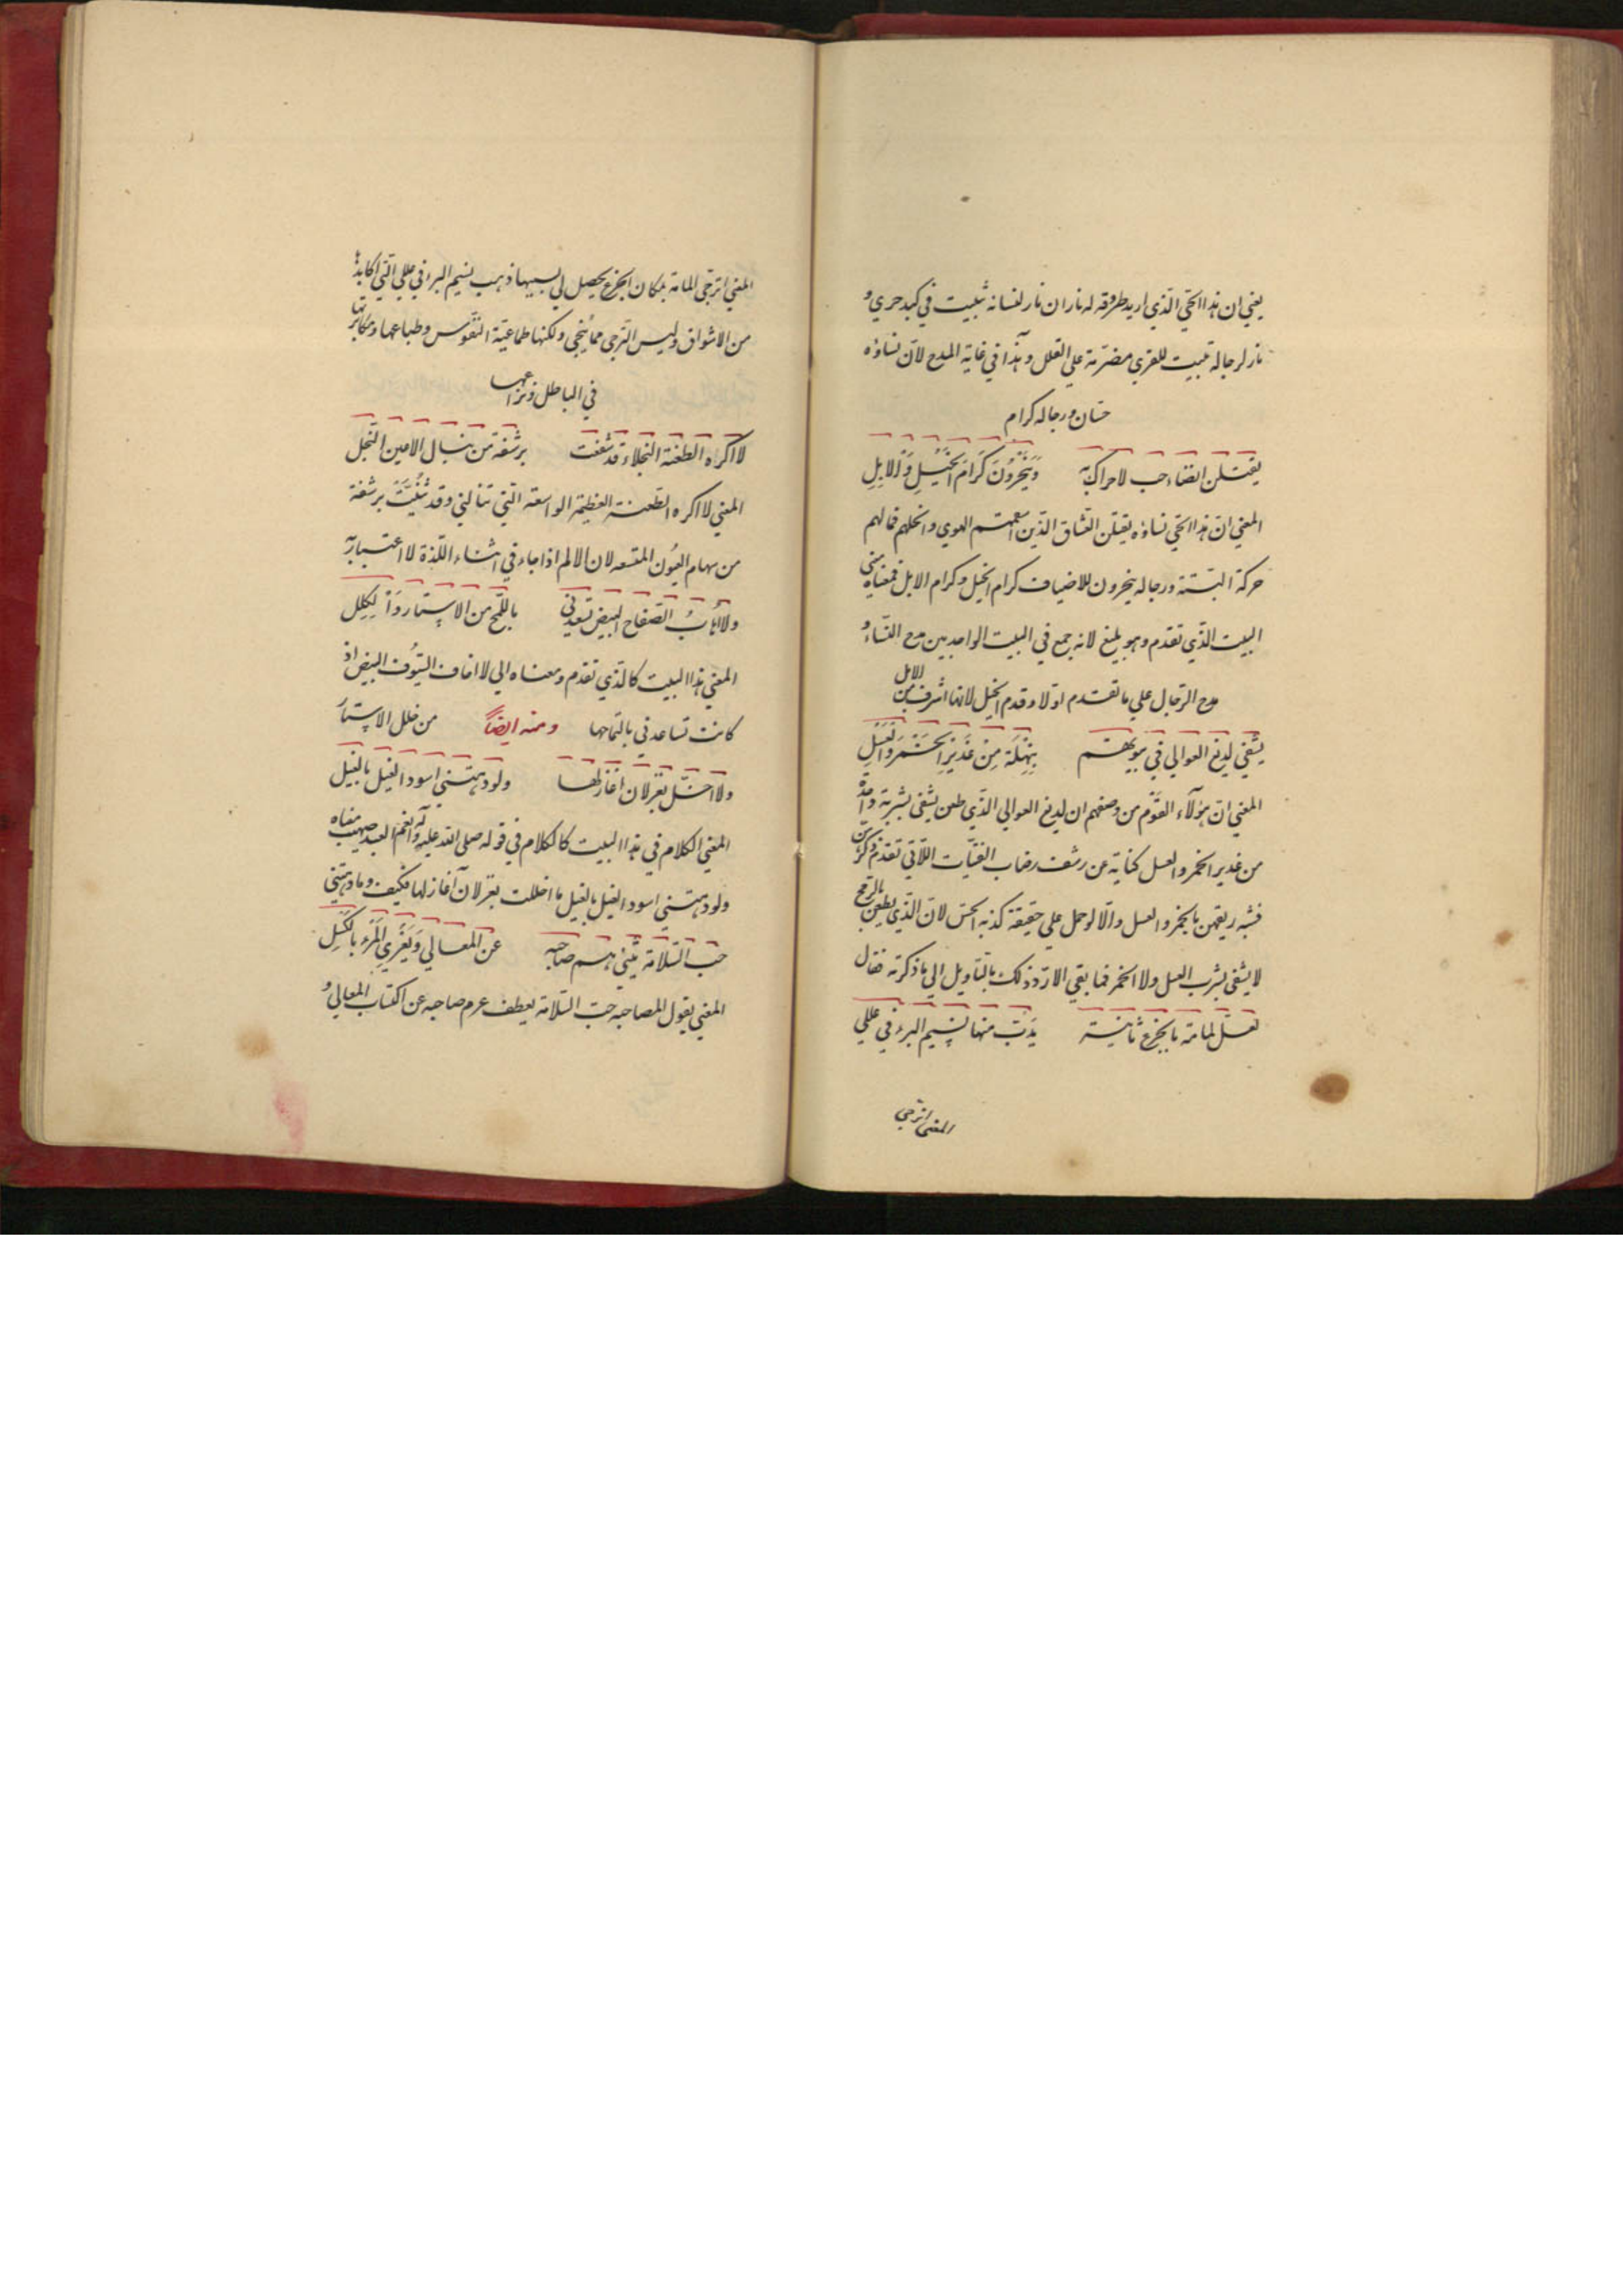 يعني ان هذا الحي الذي اريد طروقه له ناران نار لنسائه تبيت في كبد حري و
نار لرجاله تبيت للقري مضرمة علي القلل وهذا في غاية المدح لان نساؤه
حسان ورجاله كرام
يقتلن انضاء حب لا حراك به وَيَنْحَرُونَ كَرَامَ الْخَيْلِ وَالاِبِلِ
المعني ان هذا الحي نساؤه يقتلن العشاق الذين اسقمتهم الهوي وانحلهم فما لهم
حركة البتة ورجاله ينحرون للاضياف كرام الخيل وكرام الابل فمعناه مبني
البيت الذي تقدم وهو بليغ لانه جمع في البيت الواحد بين مدح النساء و
مدح الرجال علي ما تقدم اولا وقدم الخيل لانها اشرف من الابل
يشفي لديغ العوالي في بيوتهم بِنَهْلَة مِنْ غَدِيْرِ الْخَمْرِ وَالْعَسَلِ
المعني ان هؤلآء القوم من وصفهم ان لديغ العوالي الذي طعن يشفي بشربة واحدة
من غدير الخمر والعسل كناية عن رشف رضاب الفتيات اللاتي تقدم ذكرهن
فشبه ريقهن بالخمر والعسل والا لو حمل علي حقيقة كذبه الحس لان الذي يطعن بالرمح
لا يشفي بشرب العسل ولا الخمر فما بقي الا رد ذلك بالتاويل الي ما ذكرته فقال
لعل المامة بالجزع ثانية يَدِبّ منها نسيم البرء في عللي
المعني اترجي
المعني اترجي المامة بمكان الجزع يحصل لي بسببها ذهب نسيم البرء في عللي التي اكابدها
من الاشواق وليس الترجي مما ينجي ولكنها طماعية النفوس وطباعها ومكابرتها
في الباطل ونزاعها
لا اكراه الطعنة النجلاء قد شفعت برشقة من نبال الاعين النجل
المعني لا اكره الطعنة العظيمة الواسعة التي تنالني وقد ثُنِّيَتْ برشقة
من سهام العيُون المتسعه لان الالم اذا جاء في اثناء اللذة لا اعتبار به
ولا اهابُ الصفاح البيض تسعدني باللمح من الاستار وَالكِلِل
المعني هذا البيت كالذي تقدم ومعناه الي لا اخاف السيُوف البيض اذ
كانت تساعدني بالتماحها ومنه ايضاً من خلل الاستار
ولا اخل بغزلان اغازلها ولو دهتني اسود الغيل بالغيل
المعني الكلام في هذا البيت كالكلام في قوله صلي الله عليه وآله نعم العبد صهيب معناه
ولو دهتني اسود الغيل بالغيل ما اخللت بغزلان آغازلها فكيف وما دهتني
حب السلامة يثني هم صاحبه عن المعالي وَيُغْرِي الْمَرْء بالكَسَلِ
المعني يقول لصاحبه حب السلامة يعطف عزم صاحبه عن اكتساب المعالي و